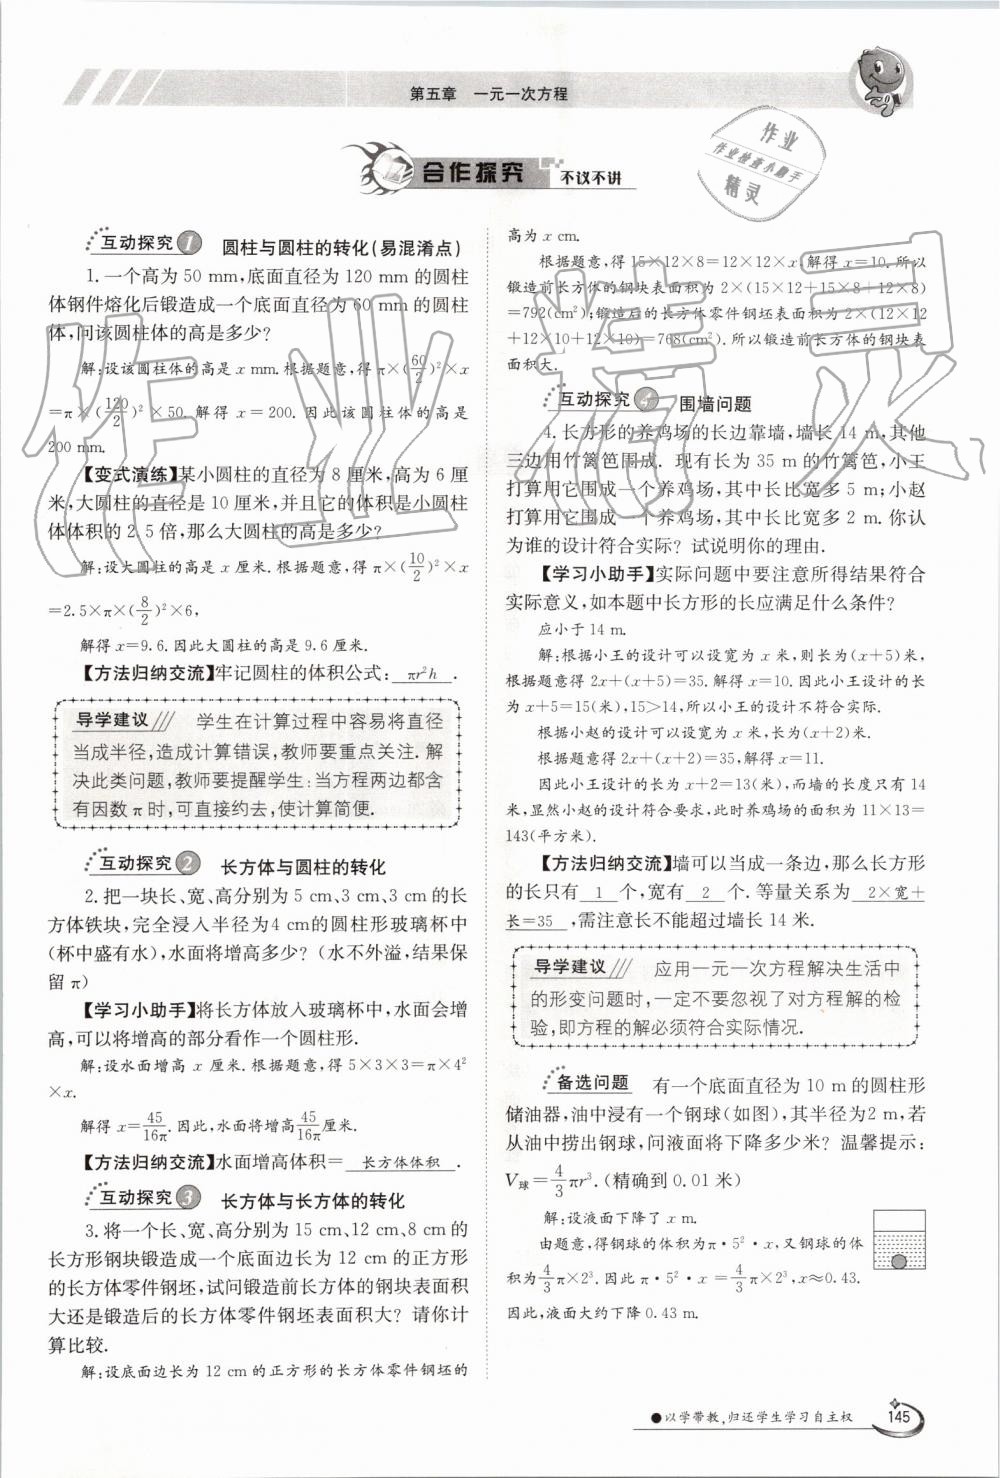 第五章 一元一次方程
合作探究 不议不讲
作业
作业检查小助手
精灵
互动探究1 圆柱与圆柱的转化(易混淆点)
1.一个高为 50 mm,底面直径为 120 mm 的圆柱
体钢件熔化后锻造成一个底面直径为 60 mm 的圆柱
体,问该圆柱体的高是多少?
解:设该圆柱体的高是 x mm.根据题意,得 π×(60/2)²×x
=π×(120/2)²×50.解得 x=200.因此该圆柱体的高是
200 mm.
【变式演练】某小圆柱的直径为 8 厘米,高为 6 厘
米,大圆柱的直径是 10 厘米,并且它的体积是小圆柱
体体积的 2.5 倍,那么大圆柱的高是多少?
解:设大圆柱的高是 x 厘米.根据题意,得 π×(10/2)²×x
=2.5×π×(8/2)²×6,
解得 x=9.6.因此大圆柱的高是 9.6 厘米.
【方法归纳交流】牢记圆柱的体积公式: πr²h .
导学建议 学生在计算过程中容易将直径
当成半径,造成计算错误,教师要重点关注.解
决此类问题,教师要提醒学生:当方程两边都含
有因数 π 时,可直接约去,使计算简便.
互动探究2 长方体与圆柱的转化
2.把一块长、宽、高分别为 5 cm、3 cm、3 cm 的长
方体铁块,完全浸入半径为4 cm的圆柱形玻璃杯中
(杯中盛有水),水面将增高多少?(水不外溢,结果保
留 π)
【学习小助手】将长方体放入玻璃杯中,水面会增
高,可以将增高的部分看作一个圆柱形.
解:设水面增高 x 厘米.根据题意,得 5×3×3=π×4²
×x.
解得 x=45/16π.因此,水面将增高45/16π厘米.
【方法归纳交流】水面增高体积= 长方体体积 .
互动探究3 长方体与长方体的转化
3.将一个长、宽、高分别为 15 cm、12 cm、8 cm 的
长方形钢块锻造成一个底面边长为 12 cm 的正方形
的长方体零件钢坯,试问锻造前长方体的钢块表面积
大还是锻造后的长方体零件钢坯表面积大? 请你计
算比较.
解:设底面边长为 12 cm 的正方形的长方体零件钢坯的
高为 x cm.
根据题意,得 15×12×8=12×12×x.解得 x=10.所以
锻造前长方体的钢块表面积为 2×(15×12+15×8+12×8)
=792(cm²);锻造后的长方体零件钢坯表面积为 2×(12×12
+12×10+12×10)=768(cm²).所以锻造前长方体的钢块表
面积大.
互动探究4 围墙问题
4.长方形的养鸡场的长边靠墙,墙长 14 m,其他
三边用竹篱笆围成. 现有长为 35 m 的竹篱笆,小王
打算用它围成一个养鸡场,其中长比宽多 5 m;小赵
打算用它围成一个养鸡场,其中长比宽多 2 m.你认
为谁的设计符合实际? 试说明你的理由.
【学习小助手】实际问题中要注意所得结果符合
实际意义,如本题中长方形的长应满足什么条件?
应小于 14 m.
解:根据小王的设计可以设宽为 x 米,则长为(x+5)米,
根据题意得 2x+(x+5)=35.解得 x=10.因此小王设计的长
为 x+5=15(米),15>14,所以小王的设计不符合实际.
根据小赵的设计可以设宽为 x 米,长为(x+2)米.
根据题意得 2x+(x+2)=35,解得 x=11.
因此小王设计的长为 x+2=13(米),而墙的长度只有 14
米,显然小赵的设计符合要求,此时养鸡场的面积为 11×13=
143(平方米).
【方法归纳交流】墙可以当成一条边,那么长方形
的长只有 1 个,宽有 2 个.等量关系为 2×宽+
长=35 ,需注意长不能超过墙长 14 米.
导学建议 应用一元一次方程解决生活中
的形变问题时,一定不要忽视了对方程解的检
验,即方程的解必须符合实际情况.
备选问题 有一个底面直径为 10 m 的圆柱形
储油器,油中浸有一个钢球(如图),其半径为2 m,若
从油中捞出钢球,问液面将下降多少米? 温馨提示:
V球=4/3πr³.(精确到 0.01 米)
解:设液面下降了 x m.
由题意,得钢球的体积为π·5²·x,又钢球的体
积为4/3π×2³.因此 π·5²·x=4/3π×2³,x≈0.43.
因此,液面大约下降 0.43 m.
作业精灵
●以学带教,归还学生学习自主权 145